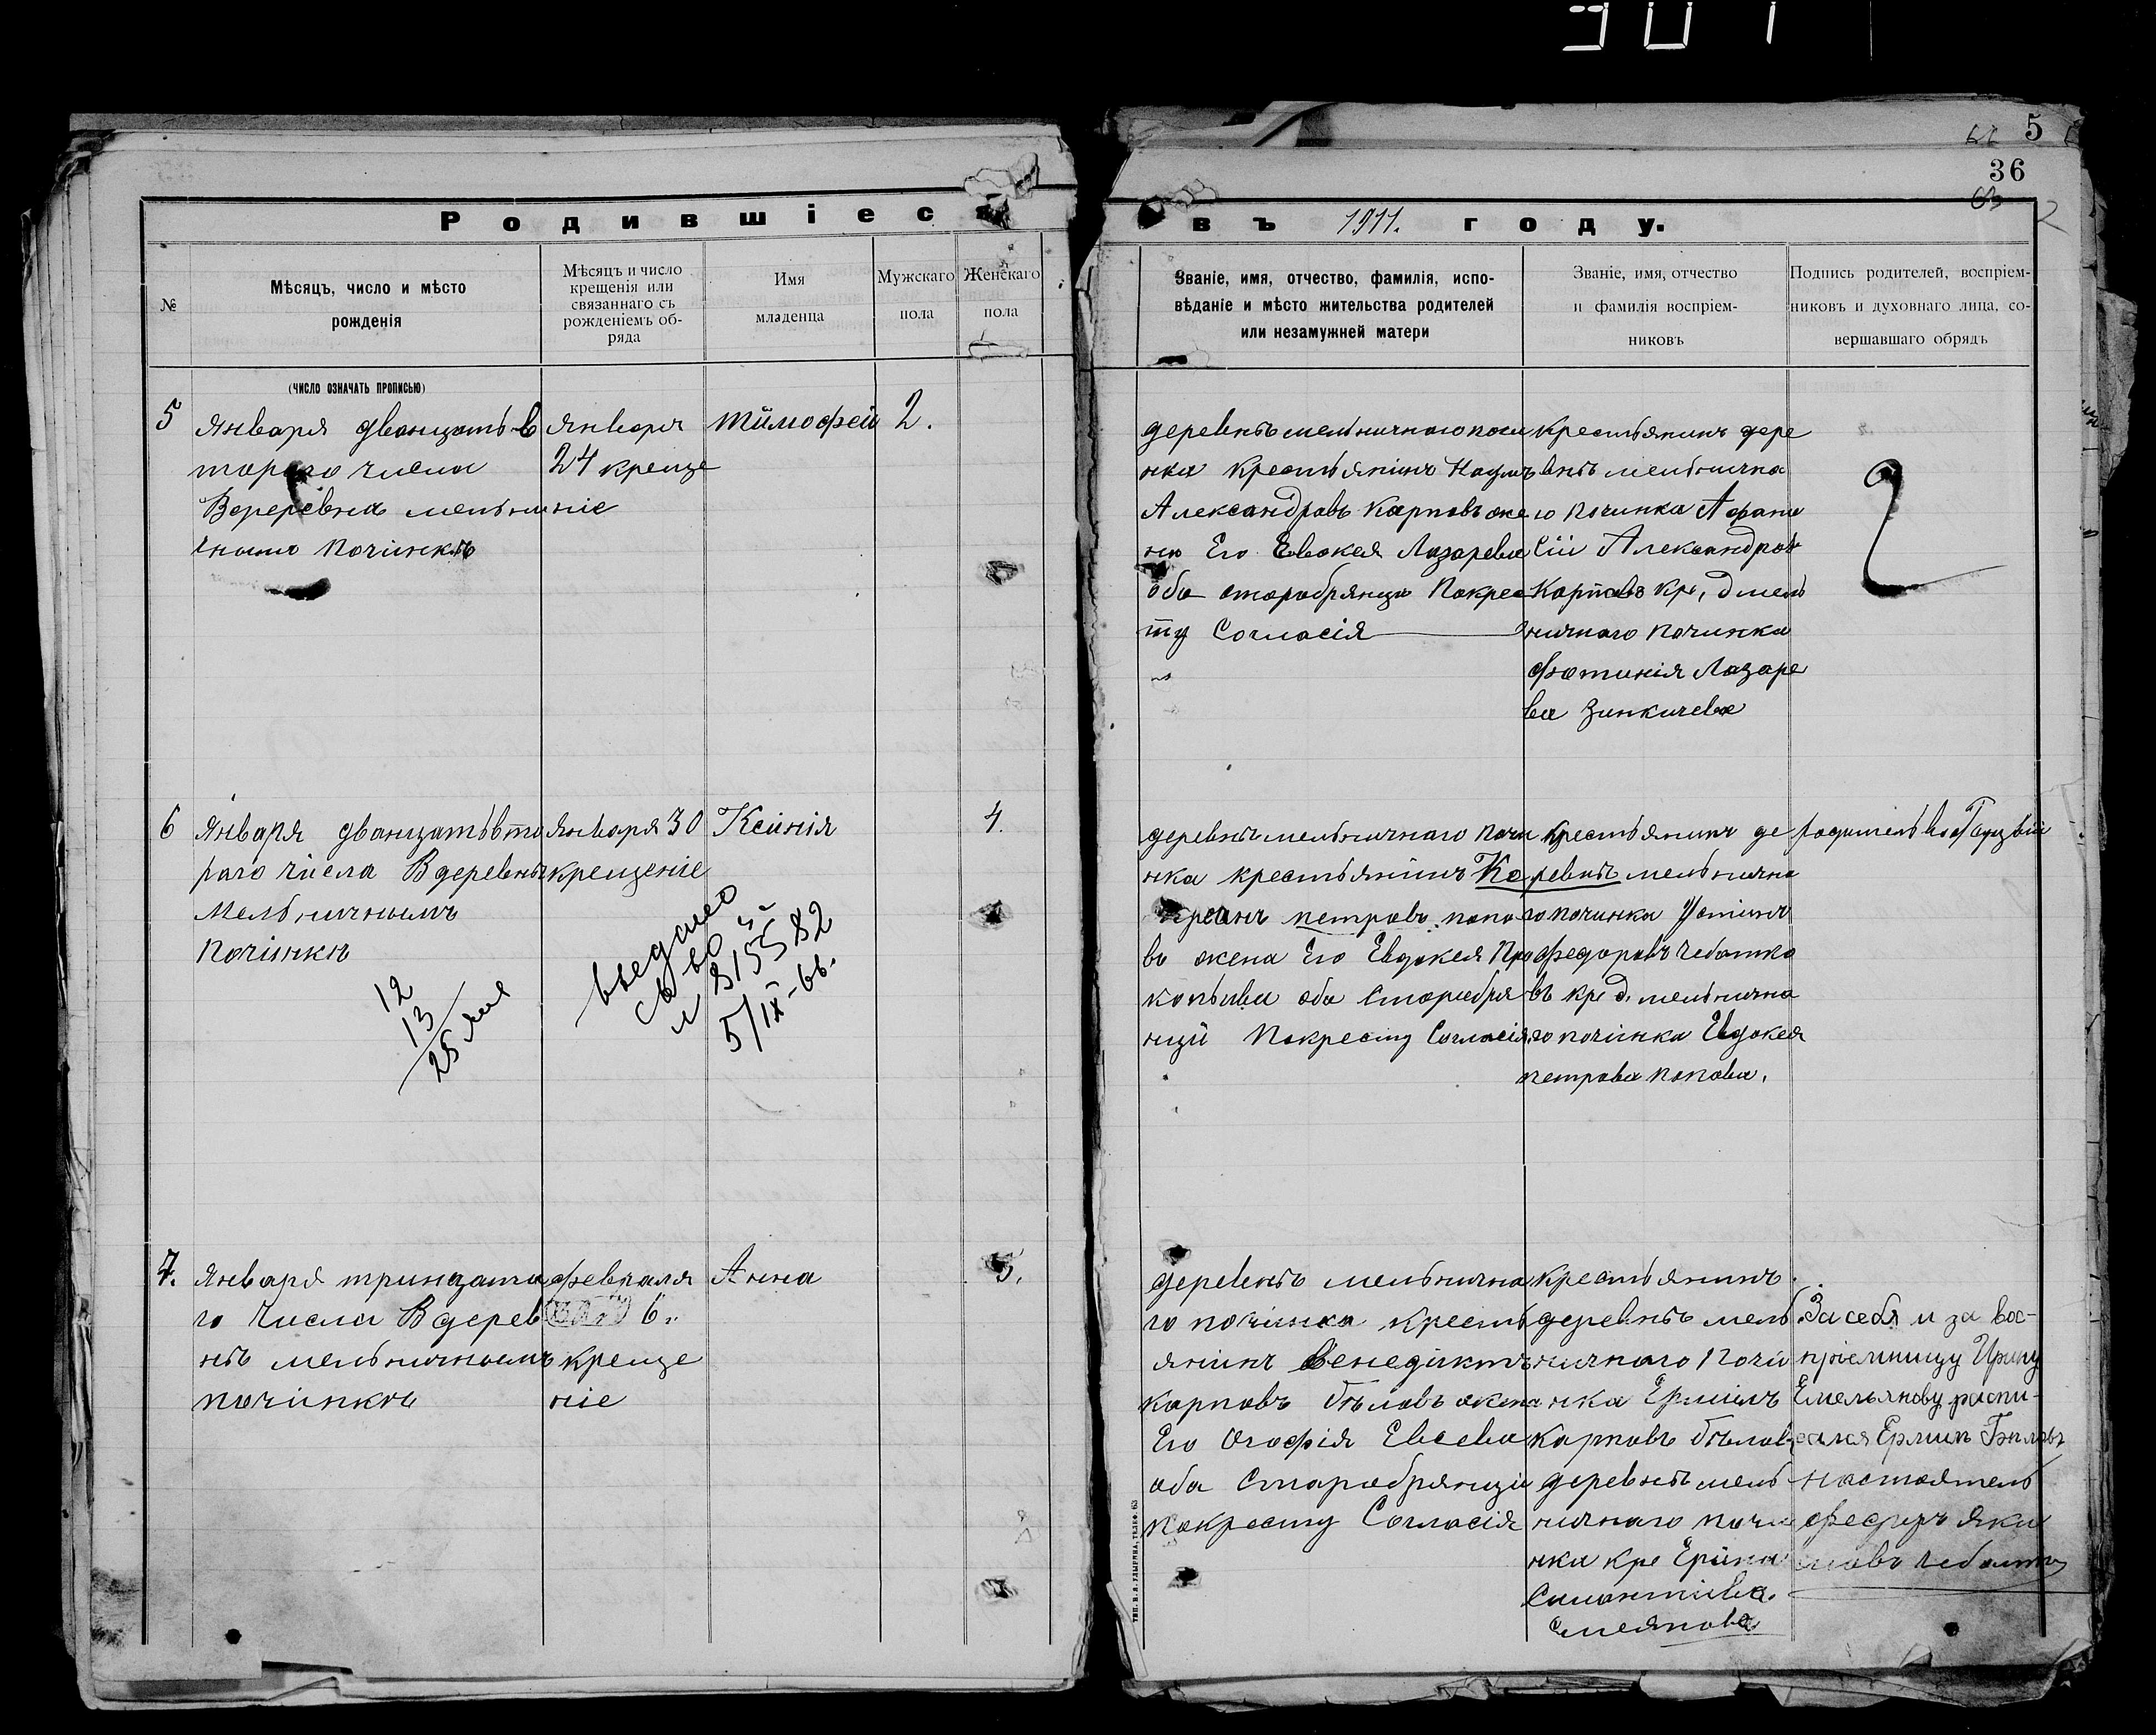 5
36
63
Родившіеся
въ 1911. году.
№
Мѣсяцъ, число и мѣсто
рожденія
Мѣсяцъ и число
крещенія или
связаннаго съ
рожденіемъ об-
ряда
Имя
младенца
Мужскаго
пола
Женскаго
пола
Званіе, имя, отчество, фамилія, испо-
вѣданіе и мѣсто жительства родителей
или незамужней матери
Званіе, имя, отчество
и фамилія воспріем-
никовъ
Подпись родителей, воспріем-
никовъ и духовнаго лица, со-
вершавшаго обрядъ
(число означать прописью)
5
Января дванцать в
тораго числа
мельни
чномъ Починкѣ
Января
24 креще
ніе
Тимофей
2.
деревнѣ мельничнаго почи
нка крестьянинъ Наумъ
Александровъ Карповъ же
на Его Евдокея Лазарева
оба старобрянцы Покрес
ту Согласія
крестьянинъ дере
внѣ мельнична
го Починка Афана
сій Александровъ
Карповъ кре, д мель
ничнаго Починка
Фотинія Лазаре
ва
6
Января дванцатьвто
раго числа В деревнѣ
Мельничномъ
Почінкѣ
12
13
25
Января 30
крещеніе
Ксинія
4.
5/IX-66.
деревнѣ мельничнаго почи
нка крестьянинъ Ки
петровъ попо
въ жена Его Евдокея Про
копьева оба Старобря
нцы Покресту Согласія
крестьянинъ де
ревнѣ мельнична
го починка Устинъ
Федоровъ Чебатко
въ кре д. мельнична
го почінка Евдокея
петрова попова.
7.
Января тринцата
го Числа В дерев
нѣ мельничномъ
почінкѣ
февраля
6.
креще
ніе
Анна
5.
деревнѣ мельнична
го почінка кресть
янінъ Венедіктъ
карповъ бѣловъ жена
Его Огофія Евсева
оба Старобрянцы
покресту Согласія
крестьянинъ
деревнѣ мель
ничнаго Почи
нка Ермилъ
Карповъ бѣловъ
деревнѣ мель
ничнаго почи
нка кре Ерина
За себя и за вос-
пріемницу Ирину
Емельянову распи-
сался Ермилъ Бѣловъ
настоятель
федоръ Яки
мовъ